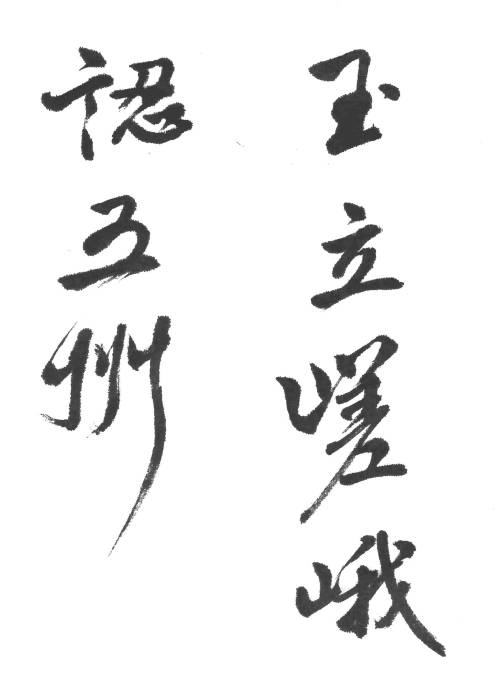 玉立嵯峨
認五州